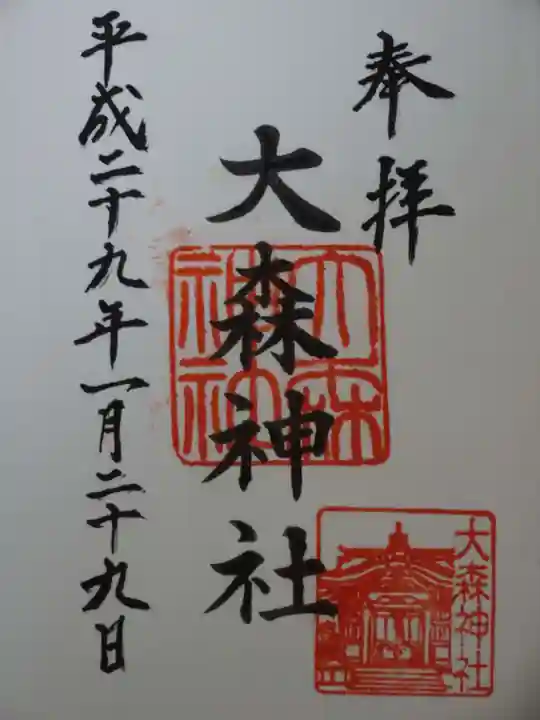 奉拝
大森神社
平成二十九年一月二十九日
大森
神社
大森神社